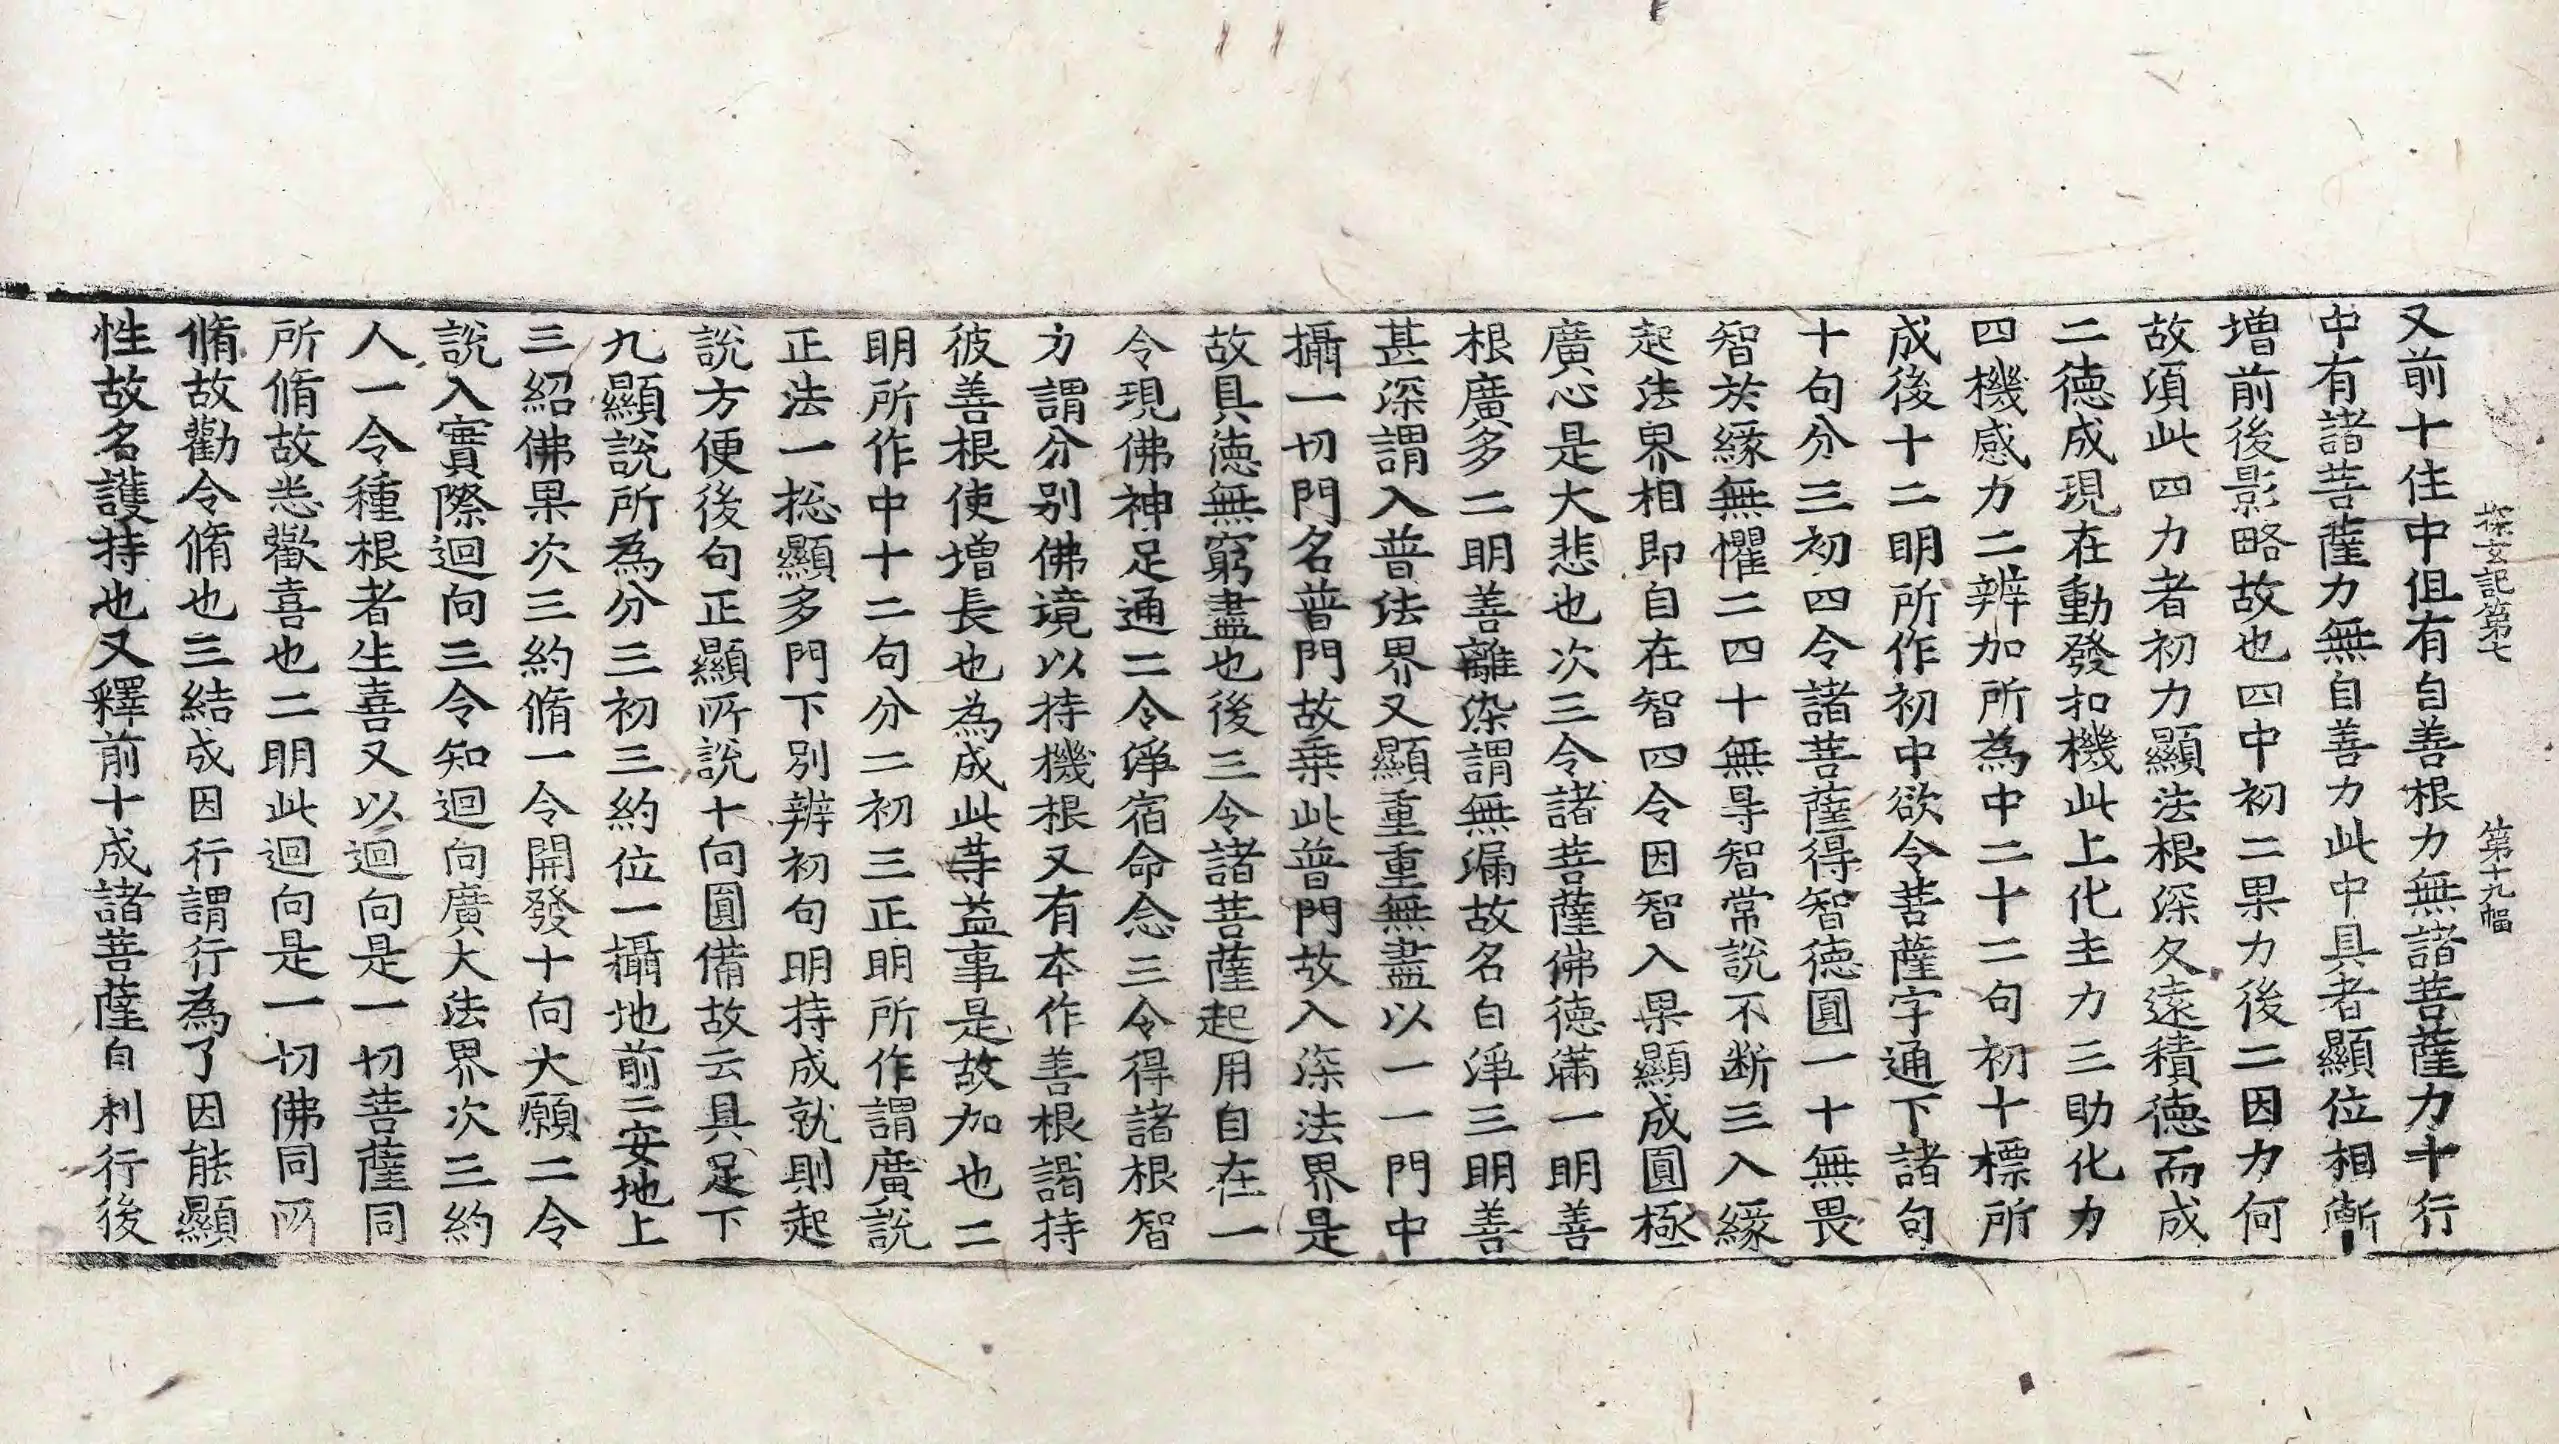 探玄記第七 第十九幅
又前十住中但有自善根力無諸菩薩力十行
中有諸菩薩力無自善力此中具者顯位相漸
増前後影略故也四中初二果力後二因力何
故湏此四力者初力顯法根深久遠積徳而成
二德成現在動發扣機此上化主力三助化力
四機感力二辨加所為中二十二句初十標所
成後十二明所作初中欲令菩薩字通下諸句
十句分三初四令諸菩薩得智德圓一十無畏
智於緣無懼二四十無㝵智常說不断三入緣
起法界相即自在智四令因智入果顯成圓極
廣心是大悲也次三令諸菩薩佛德滿一明善
根廣多二明善離染謂無漏故名白淨三明善
甚深謂入普法界又顯重重無盡以一一門中
攝一切門名普門故乗此普門故入深法界是
故具德無窮盡也後三令諸菩薩起用自在一
令現佛神足通二令淨宿命念三令得諸根智
力謂分别佛境以持機根又有本作善根謂持
彼善根使増長也為成此䓁益事是故加也二
明所作中十二句分二初三正明所作謂廣說
正法一捴顯多門下別辨初句明持成就則起
說方便後句正顯所說十向圓備故云具足下
九顯說所為分三初三約位一攝地前二安地上
三紹佛果次三約脩一令開發十向大願二令
說入實際迴向三令知迴向廣大法界次三約
人一令種根者生喜又以迴向是一切菩薩同
所脩故悉歡喜也二明此迴向是一切佛同所
脩故勸令脩也三結成因行謂行為了因能顯
性故名護持也又釋前十成諸菩薩自利行後